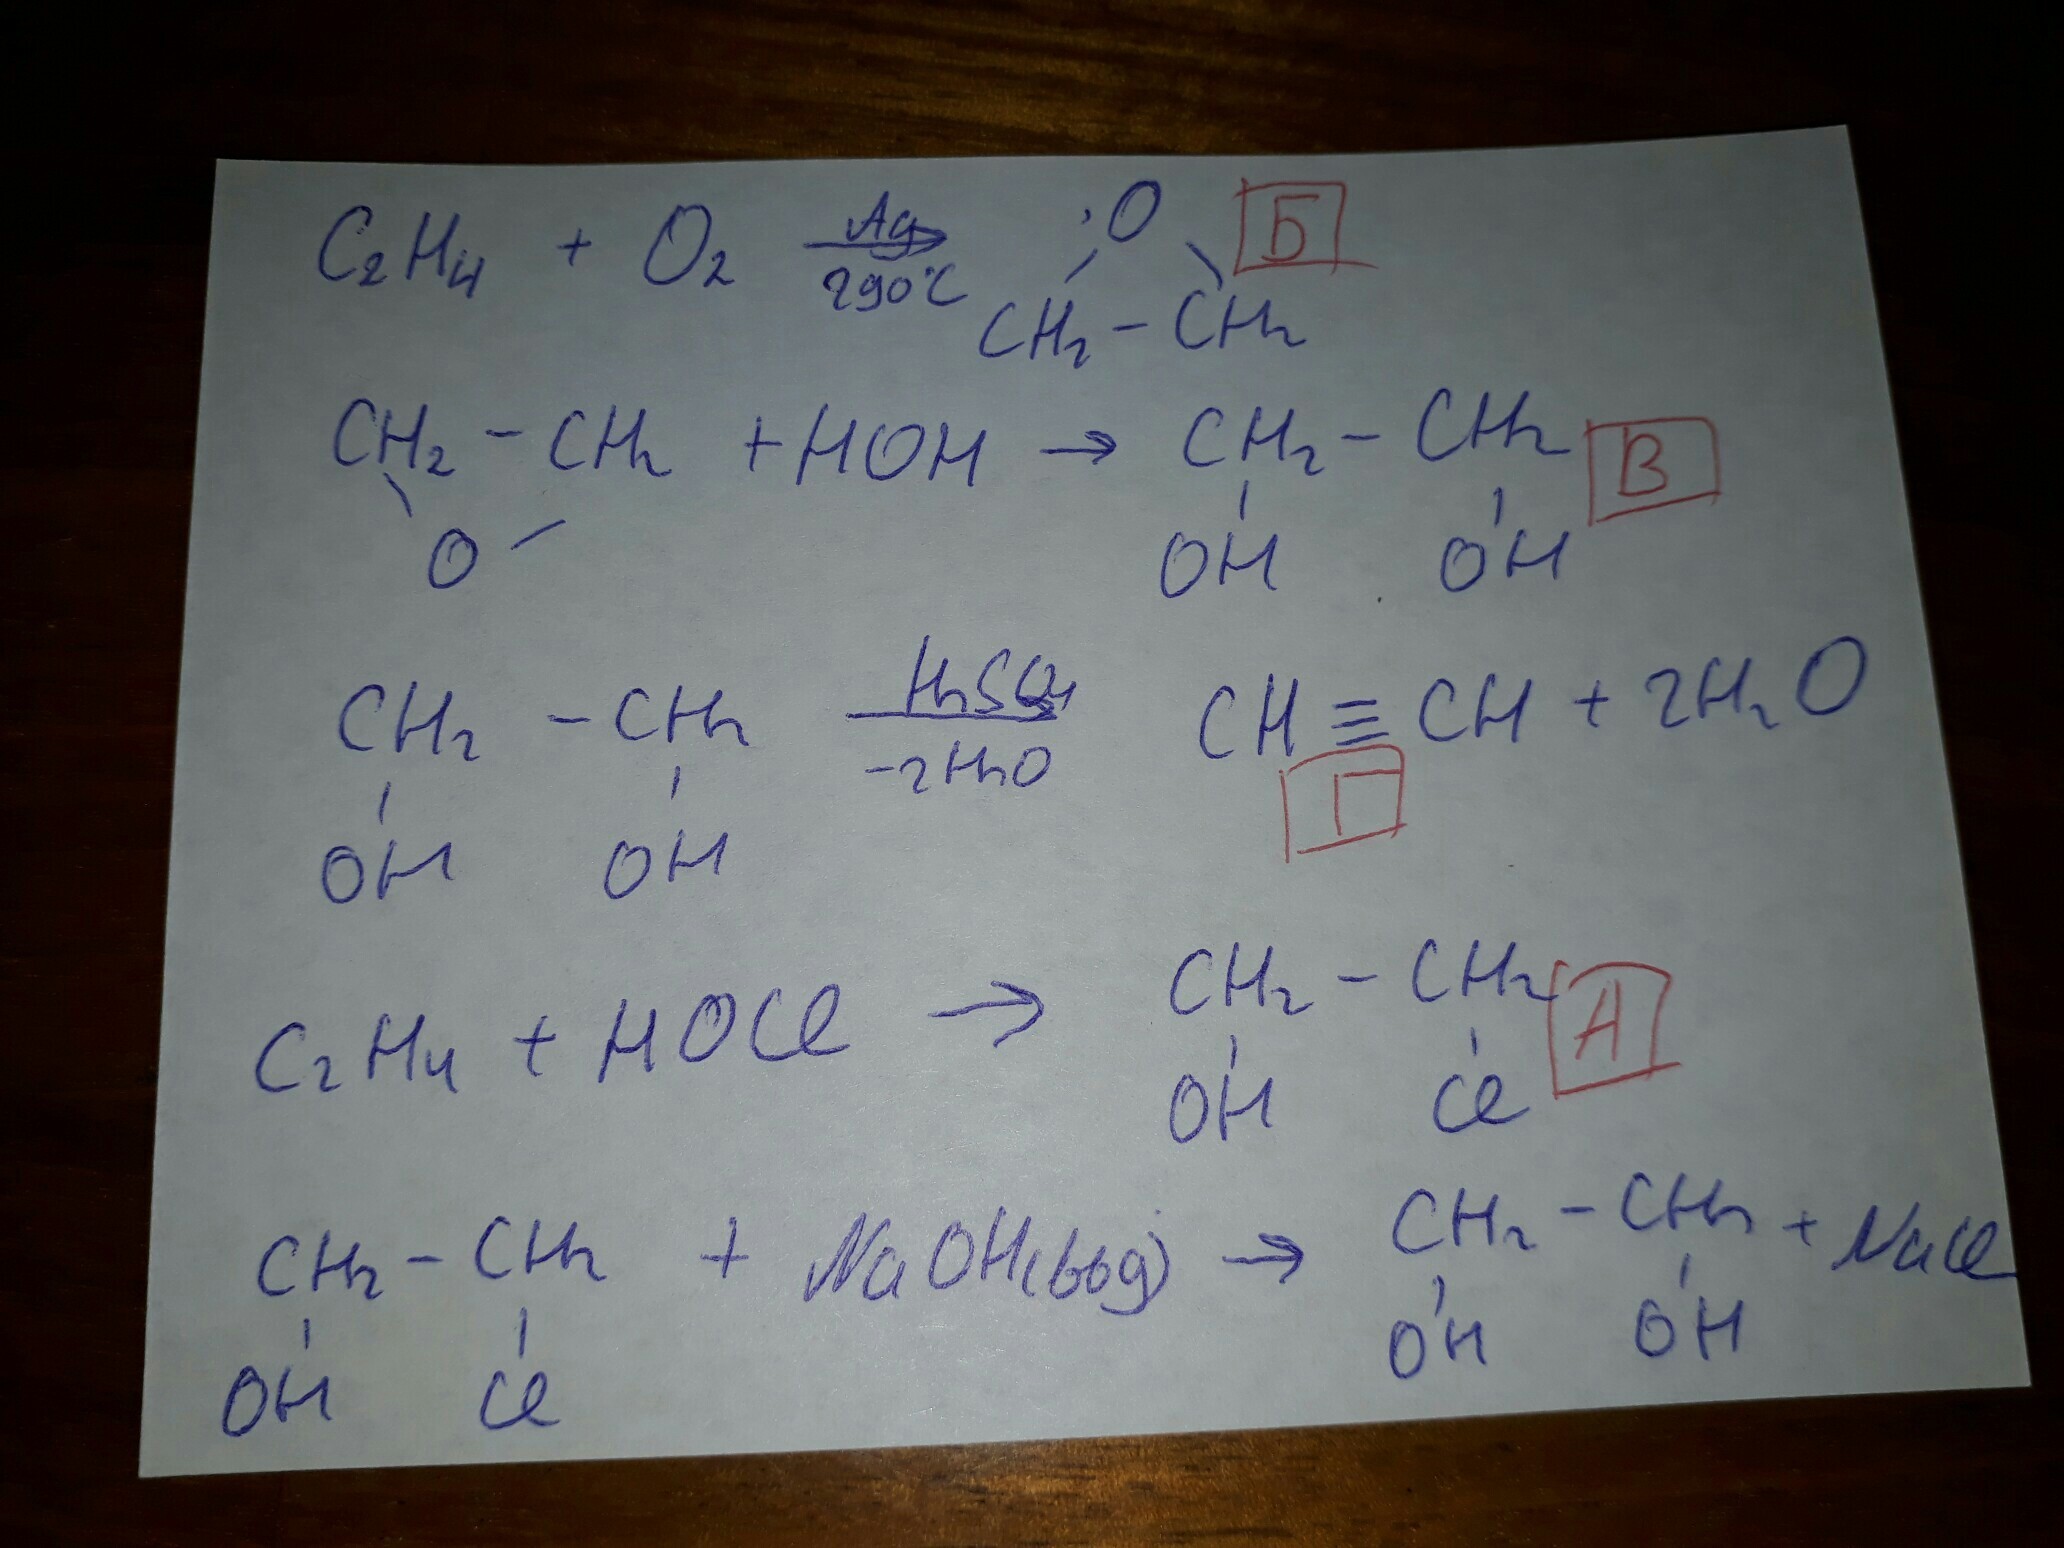 C₂H₄ + O₂ —Ag→ O Б
290°C CH₂ – CH₂
CH₂ – CH₂ + HOH → CH₂ – CH₂ В
O OH OH
CH₂ – CH₂ H₂SO₄ CH ≡ CH + 2H₂O
-2H₂O Г
OH OH
C₂H₄ + HOCl → CH₂ – CH₂ А
OH Cl
CH₂ – CH₂ + NaOH(вод) → CH₂ – CH₂ + NaCl
OH Cl OH OH